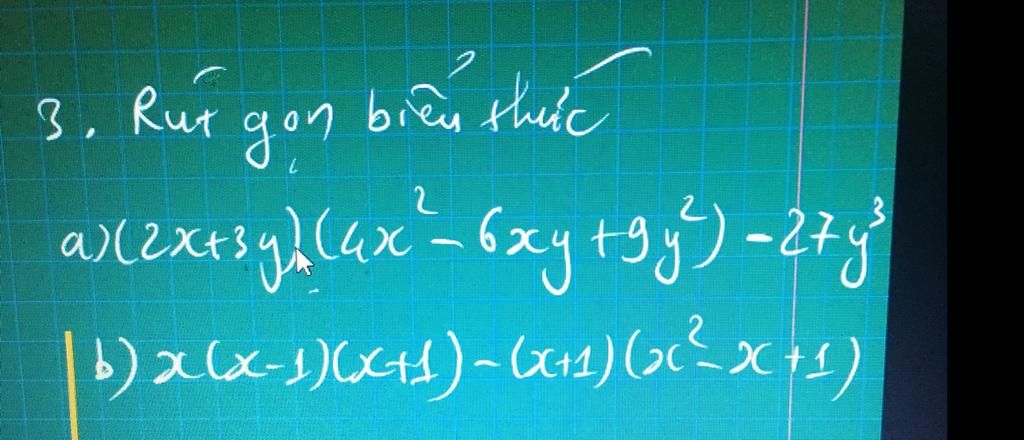 3. Rút gọn biểu thức
a) (2x+3y)(4x² - 6xy + 9y²) - 27y³
b) x(x-1)(x+1) - (x+1)(x² - x + 1)